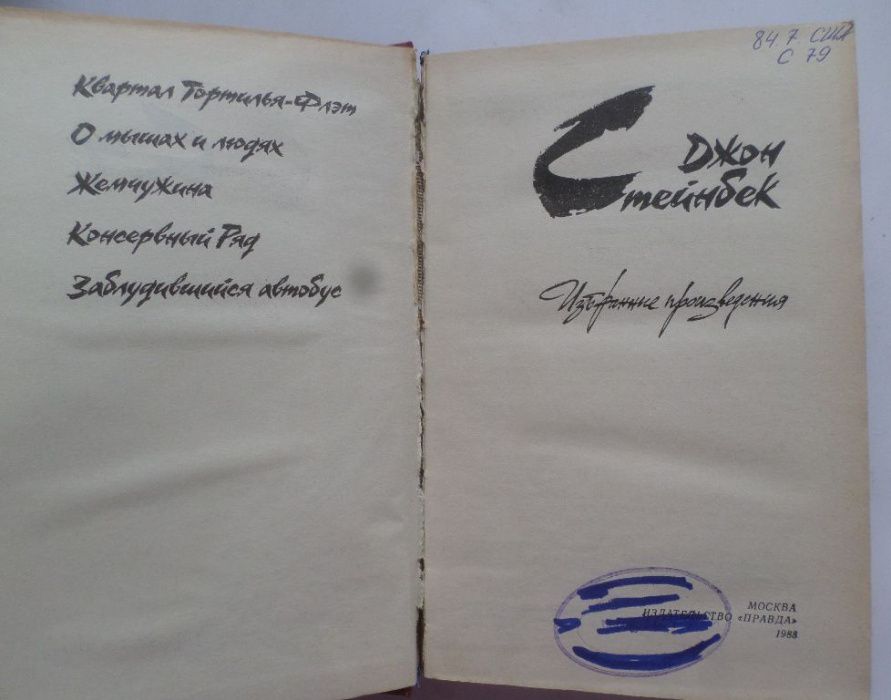 Квартал Тортилья-Флэт
О мышах и людях
Жемчужина
Консервный Ряд
Заблудившийся автобус
84.7 США
С 79
Джон
Стейнбек
Избранные произведения
МОСКВА
ИЗДАТЕЛЬСТВО «ПРАВДА»
1988